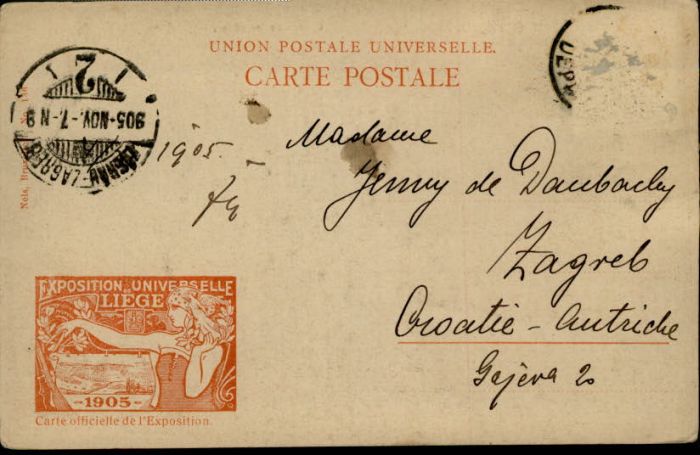 UNION POSTALE UNIVERSELLE.
CARTE POSTALE
2
905 NOV. -7. N 9
ZÁGRÁB ZAGREB
DEPA
Nels, Brux
1905.
Madame
Jenny de Daubachy
Zagreb
Croatie - Autriche
Gajeva 2
EXPOSITION UNIVERSELLE
LIEGE
-1905-
Carte officielle de l'Exposition.